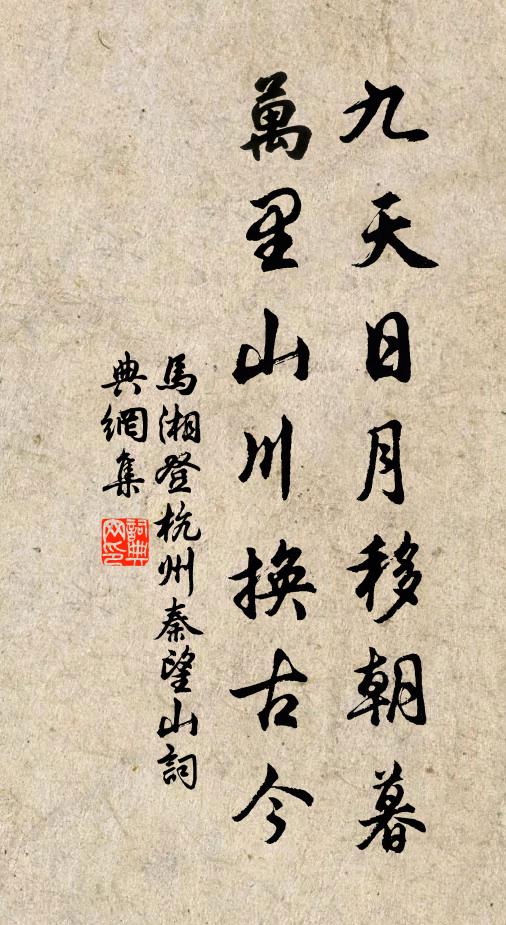 九天日月移朝暮
萬里山川換古今
馬湘登杭州秦望山詞
典網集
詞典
网印